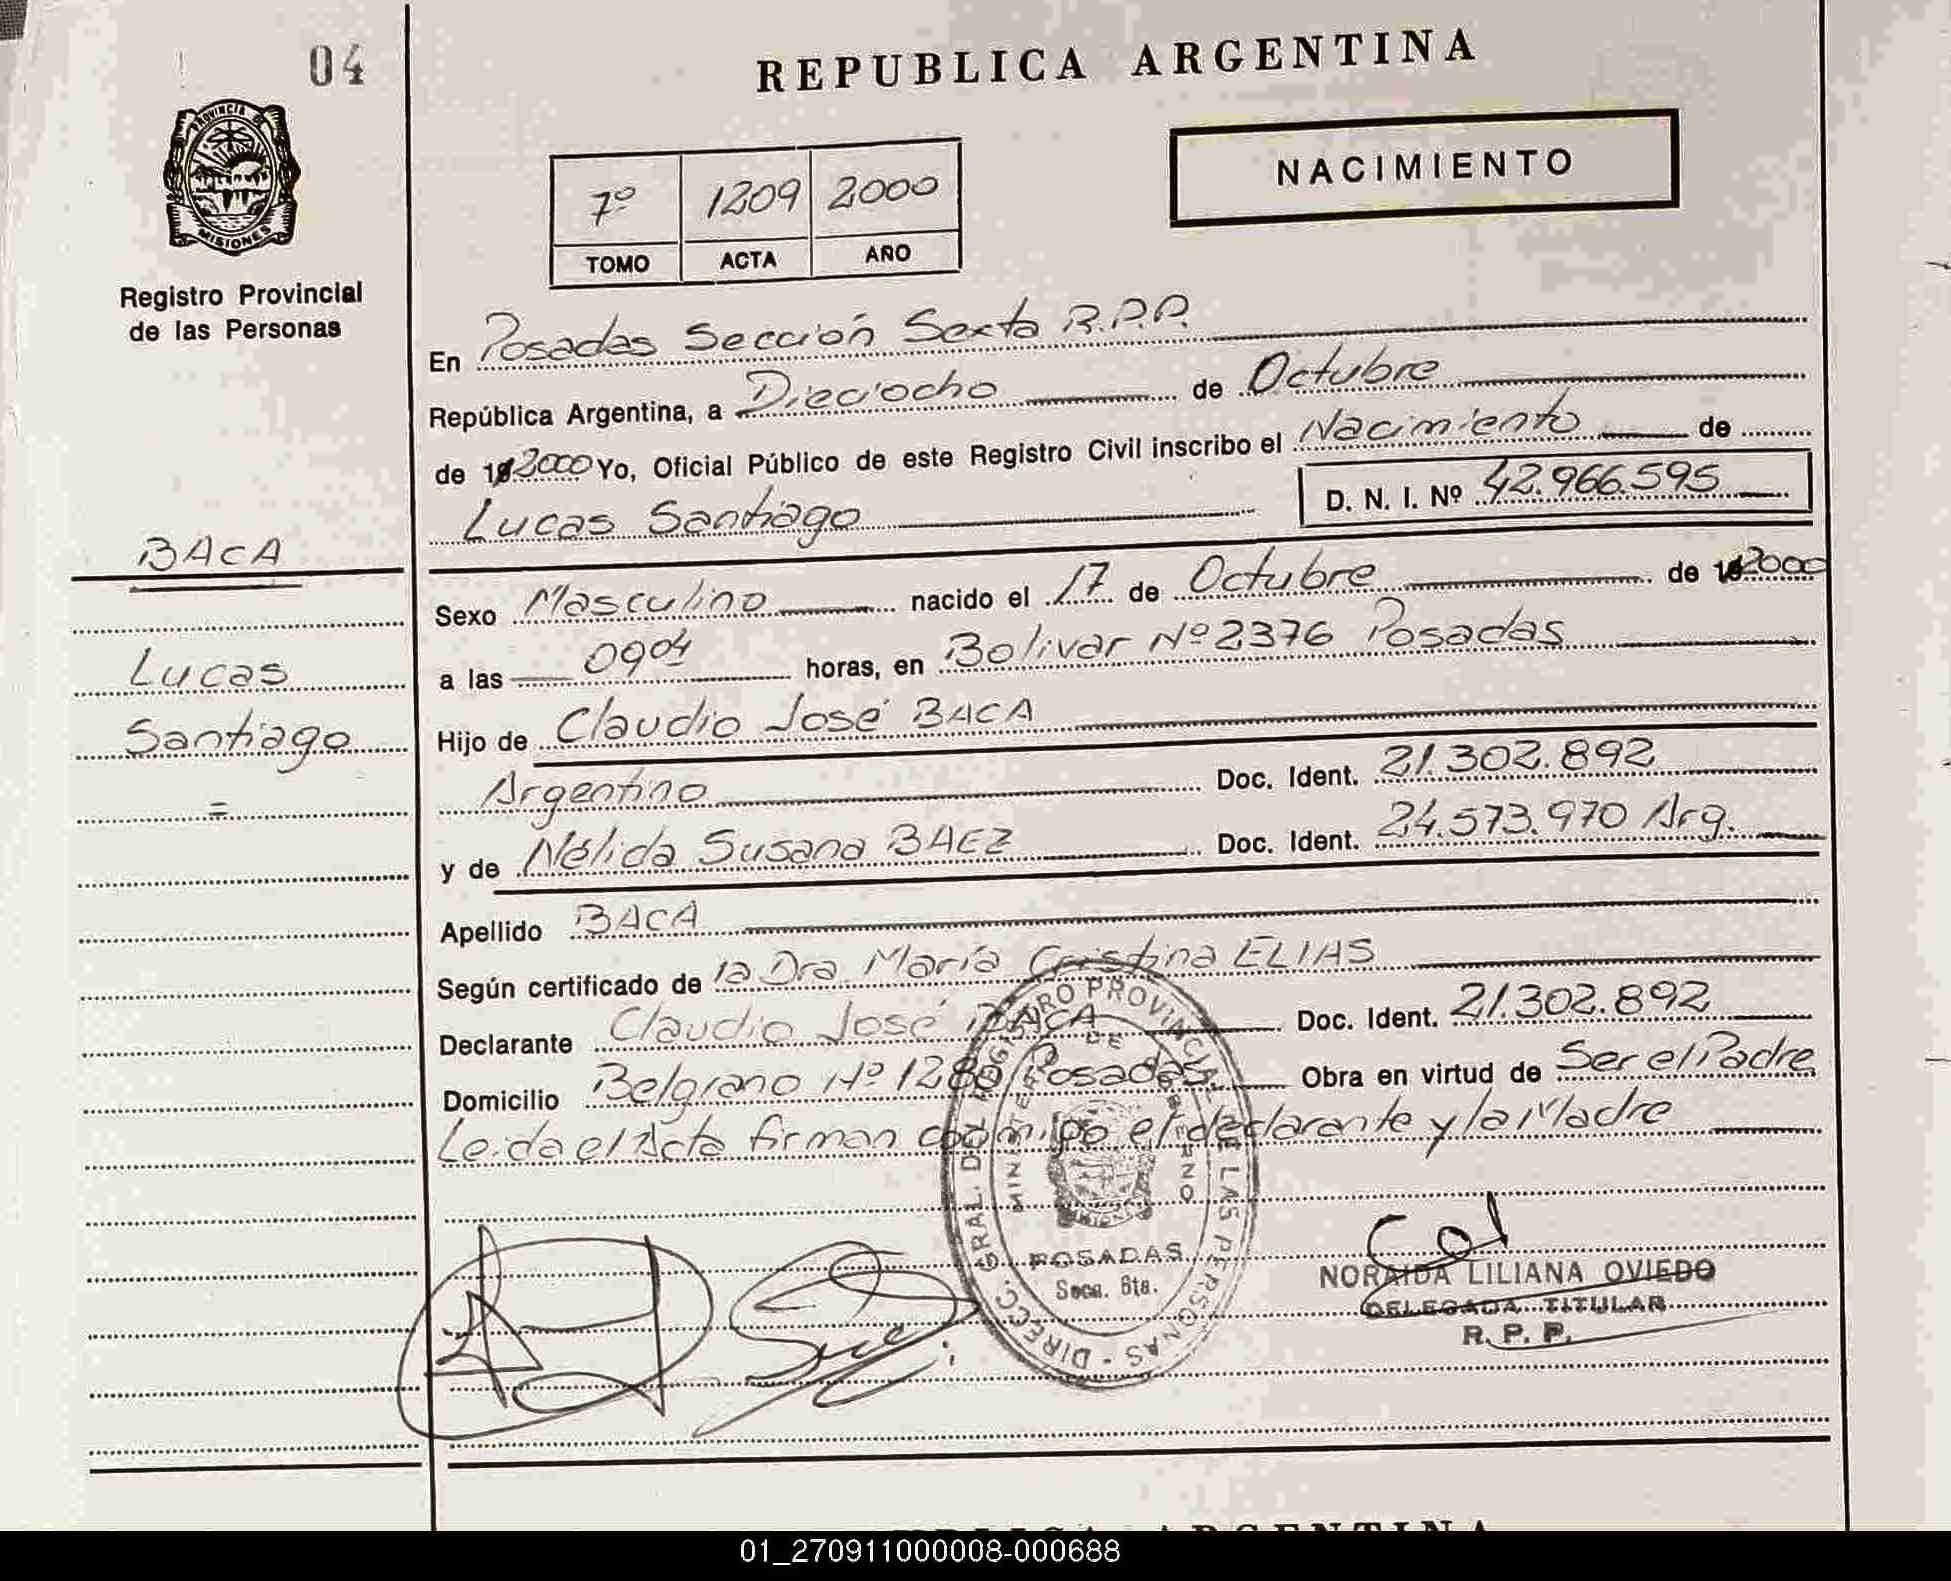 04
REPUBLICA ARGENTINA
PROVINCIA DE
MISIONES
Registro Provincial
de las Personas
7º 1209 2000
TOMO ACTA AÑO
NACIMIENTO
En Posadas Sección Sexta R.P.P.
República Argentina, a Dieciocho de Octubre
de 2000 Yo, Oficial Público de este Registro Civil inscribo el Nacimiento de
Lucas Santiago D. N. I. Nº 42.966.595
BACA
Lucas
Santiago
=
Sexo Masculino nacido el 17 de Octubre de 2000
a las 09 04 horas, en Bolivar Nº 2376 Posadas
Hijo de Claudio José BACA
Argentino Doc. Ident. 21.302.892
y de Nélida Susana BAEZ Doc. Ident. 24.573.970 Arg.
Apellido BACA
Según certificado de la Dra María Cristina ELIAS
Declarante Claudio José BACA Doc. Ident. 21.302.892
Domicilio Belgrano Nº 1280 Posadas Obra en virtud de Ser el Padre
Leida el Acta firman conmigo el declarante y la Madre
DIRECC. GRAL. DEL REGISTRO PROVINCIAL DE LAS PERSONAS
MINISTERIO DE GOBIERNO
MISIONES
POSADAS
Secc. 6ta.
NORAIDA LILIANA OVIEDO
DELEGADA TITULAR
R. P. P.
REPUBLICA ARGENTINA
01_270911000008-000688